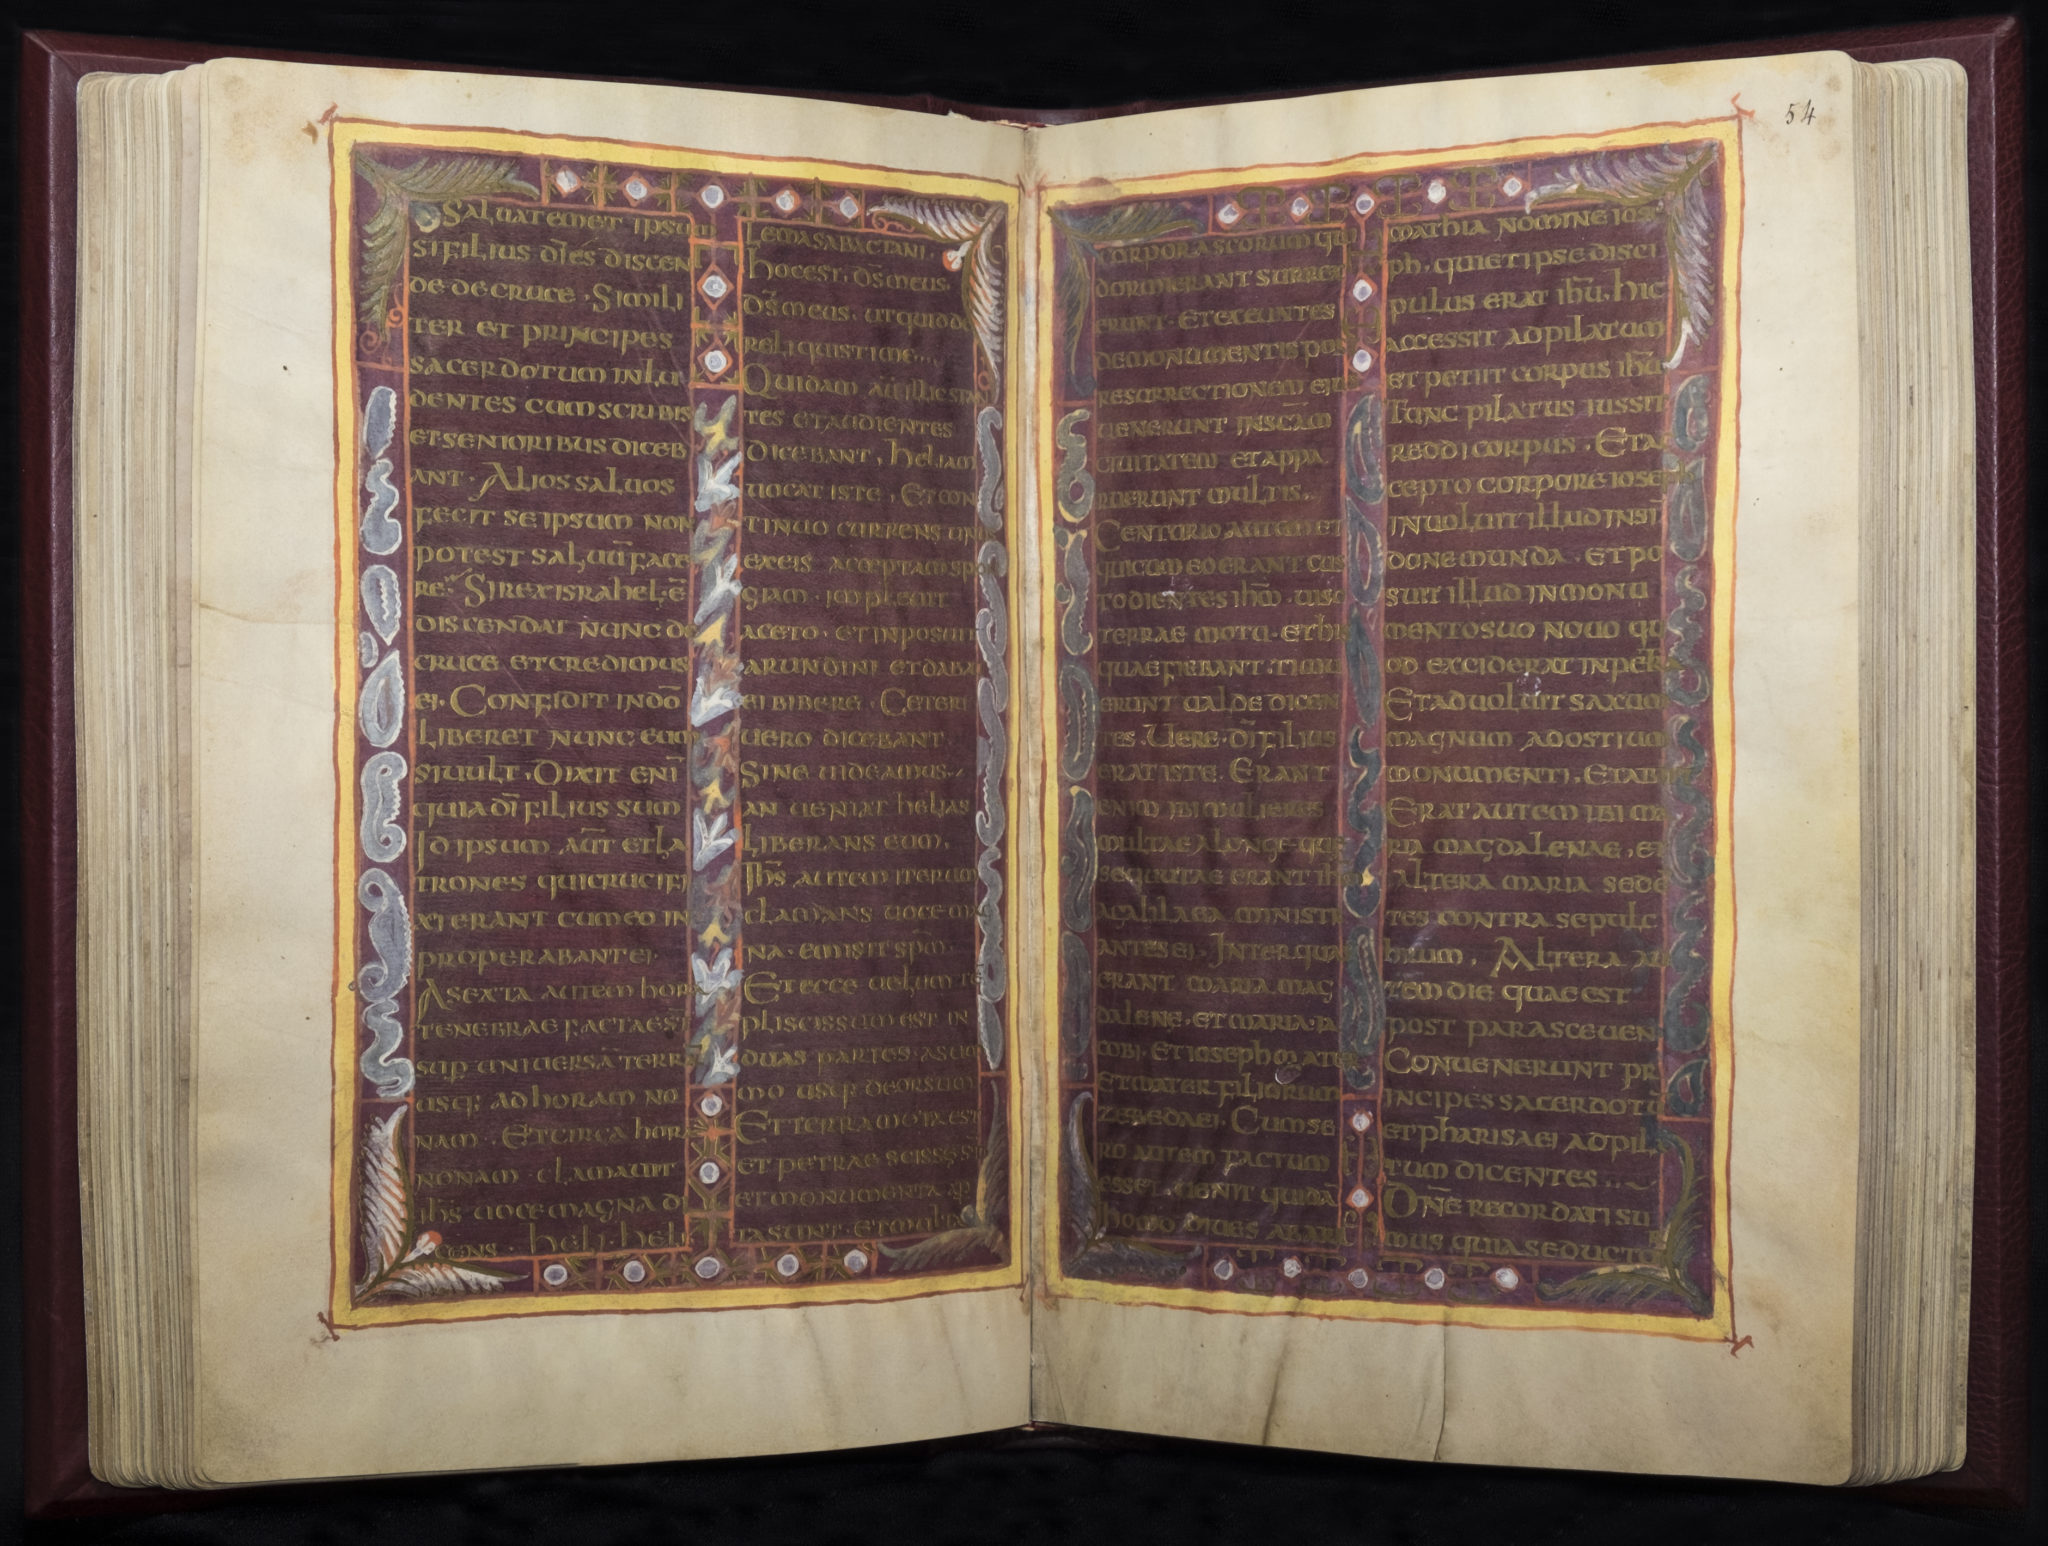 Saluatemet ipsum
si filius dī es discen
de de cruce · Simili
ter et principes
sacerdotum inlu
dentes cum scribis
et senioribus diceb
ant · Alios saluos
fecit se ipsum non
potest saluū face
re · Si rex israhel · ē
discendat nunc de
cruce et credimus
ei · Confidit in dō
liberet nunc eum
si uult · Dixit enī
quia dī filius sum
Id ipsum aūt et la
trones qui crucifi
xi erant cum eo in
properabant ei ·
A sexta autem hora
tenebrae factae sī
sup uniuersā terrā
usq; ad horam no
nam · Et circa hora
nonam · clamauit
ihs uoce magna di
cens · heli · heli
Lema sabactani ·
hoc est · ds meus ·
ds meus · ut quid de
reliquisti me
Quidam aū illic stan
tes et audientes
dicebant · heliam
uocat iste · Et con
tinuo currens unus
ex eis acceptam spo
giam · impleuit
aceto · et inposuit
arundini et daba
ei bibere · Ceteri
uero dicebant
Sine uideamus
an ueniat helias
liberans eum ·
Ihs autem iterum
clamans uoce ma
na · emisit spm ·
Et ecce uelum te
pli scissum est in
duas partes · a sum
mo usq; deorsum
Et terra mota est
et petrae scissę sī
et monumenta
ta sunt · Et multa
54
corpora scorum qui
dormierant surrex
erunt · Et exeuntes
de monumentis pos
resurrectionem eius
uenerunt in scām
ciuitatem et appa
ruerunt multis ·
Centurio autem et
qui cum eo erant cus
todientes ihm · uiso
terrae motu · et his
quae fiebant · timu
erunt ualde dicen
tes · Uere · dī filius
erat iste · Erant
enim ibi mulieres
multae a longe · que
secutae erant ihm
a galilaea ministr
antes ei · Inter quas
erant maria mag
dalene · et maria · ia
cobi · et ioseph mater
Et mater filiorum
zebedaei · Cum se
ro autem factum
esset · uenit quidā
homo diues ab ari
mathia nomine iose
ph · qui et ipse disci
pulus erat ihū · hic
accessit ad pilatum
et petiit corpus ihū
Tunc pilatus iussit
reddi corpus · Et ac
cepto corpore ioseph
inuoluit illud in sin
done munda · et po
suit illud in monu
mento suo nouo qu
od exciderat in petra
Et aduoluit saxum
magnum ad ostium
monumenti · Et abiit
Erat autem ibi ma
ria magdalenae · et
altera maria sedē
tes contra sepulc
hrum · Altera au
tem die quae est
post parasceuen
Conuenerunt pr
incipes sacerdotū
et pharisaei ad pila
tum dicentes
Dne recordati su
mus quia seductor